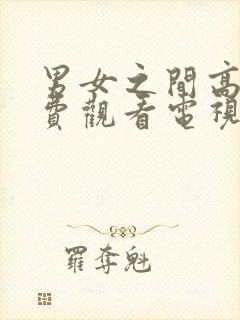 男女之間高
費觀看電視
羅奪魁